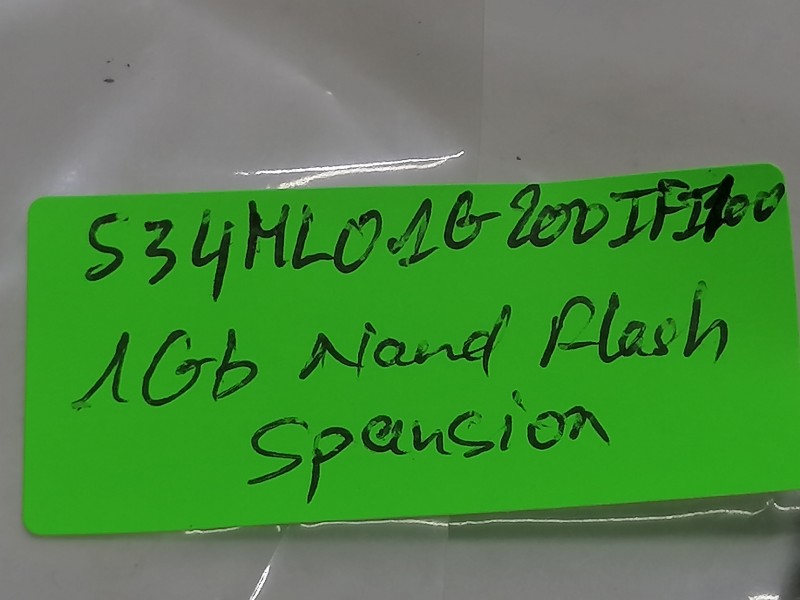 S34ML01G200DIFI100
1Gb Nand Flash
Spansion